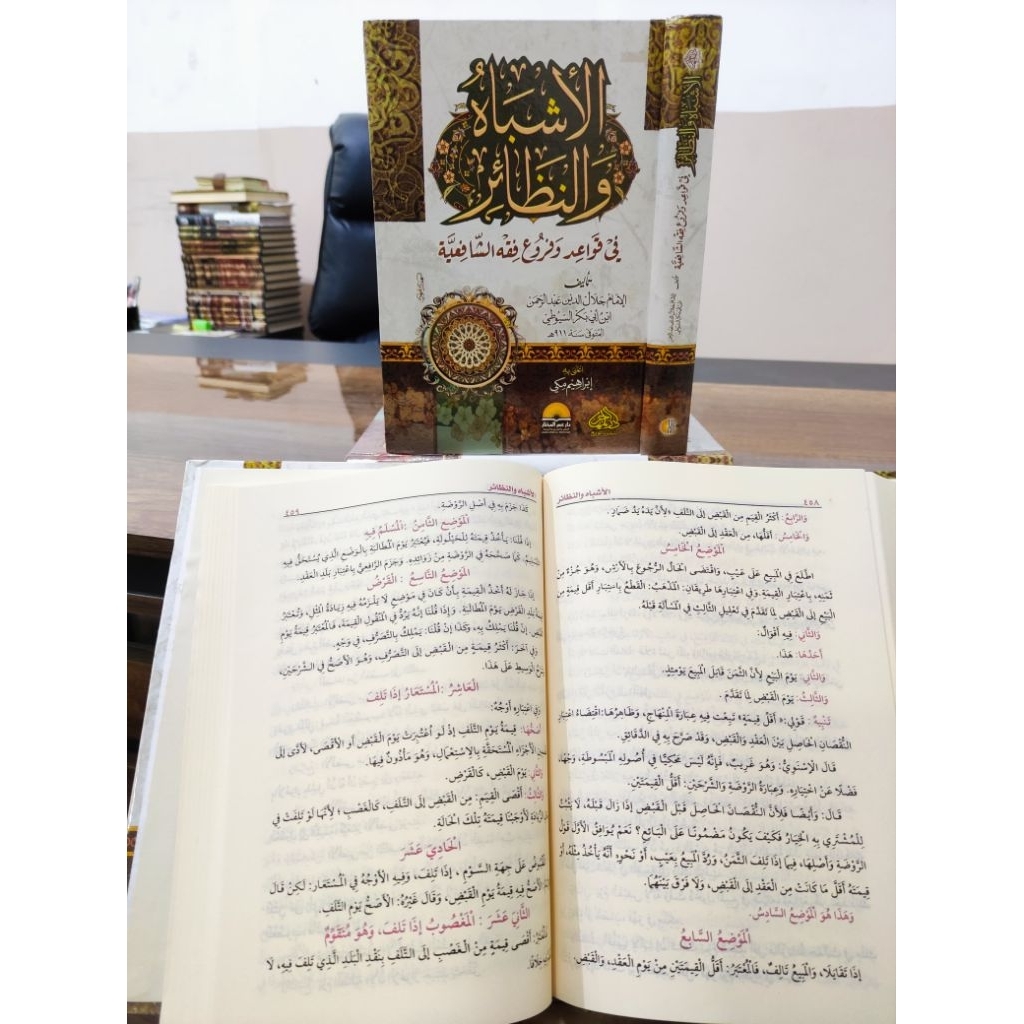 الأشباه
والنظائر
في قواعد وفروع فقه الشافعية
تأليف
الإمام جلال الدين عبد الرحمن
ابن أبي بكر السيوطي
المتوفى سنة ٩١١هـ
اعتنى به
إبراهيم مكي
دار عمر المختار
الأشباه والنظائر
في قواعد وفروع فقه الشافعية
٤٥٨ الأشباه والنظائر
وَالرَّابِعُ: أَكْثَرُ الْقِيَمِ مِنَ الْقَبْضِ إِلَى التَّلَفِ لِأَنَّ يَدَهُ يَدُ ضَمَانٍ.
وَالْخَامِسُ: أَقَلُّهَا، مِنَ الْعَقْدِ إِلَى الْقَبْضِ.
الْمَوْضِعُ الْخَامِسُ
اطَّلَعَ فِي الْمَبِيعِ عَلَى عَيْبٍ، وَاقْتَضَى الْحَالُ الرُّجُوعَ بِالْأَرْشِ، وَهُوَ جُزْءٌ مِنْ
ثَمَنِهِ، بِاعْتِبَارِ الْقِيمَةِ. وَفِي اعْتِبَارِهَا طَرِيقَانِ: الْمَذْهَبُ: الْقَطْعُ بِاعْتِبَارِ أَقَلِّ قِيمَةٍ مِنَ
الْبَيْعِ إِلَى الْقَبْضِ لِمَا تَقَدَّمَ فِي تَعْلِيلِ الثَّالِثِ فِي الْمَسْأَلَةِ قَبْلَهُ.
وَالثَّانِي: فِيهِ أَقْوَالٌ:
أَحَدُهَا: هَذَا.
وَالثَّانِي: يَوْمَ الْبَيْعِ لِأَنَّ الثَّمَنَ قَابَلَ الْمَبِيعَ يَوْمَئِذٍ.
وَالثَّالِثُ: يَوْمَ الْقَبْضِ لِمَا تَقَدَّمَ.
تَنْبِيهٌ: قَوْلِي: «أَقَلُّ قِيمَةٍ» تَبِعْتُ فِيهِ عِبَارَةَ الْمِنْهَاجِ، وَظَاهِرُهَا: اقْتِضَاءُ اعْتِبَارِ
النُّقْصَانِ الْحَاصِلِ بَيْنَ الْعَقْدِ وَالْقَبْضِ، وَقَدْ صَرَّحَ بِهِ فِي الدَّقَائِقِ.
قَالَ الْإِسْنَوِيُّ: وَهُوَ غَرِيبٌ، فَإِنَّهُ لَيْسَ مَحْكِيًّا فِي أُصُولِهِ الْمَبْسُوطَةِ، وَجْهًا،
فَضْلًا عَنْ اخْتِيَارِهِ. وَعِبَارَةُ الرَّوْضَةِ وَالشَّرْحَيْنِ: أَقَلُّ الْقِيمَتَيْنِ.
قَالَ: وَأَيْضًا فَلِأَنَّ النُّقْصَانَ الْحَاصِلَ قَبْلَ الْقَبْضِ إِذَا زَالَ قَبْلَهُ، لَا يَثْبُتُ
لِلْمُشْتَرِي بِهِ الْخِيَارُ فَكَيْفَ يَكُونُ مَضْمُونًا عَلَى الْبَائِعِ؟ نَعَمْ يُوَافِقُ الْأَوَّلَ قَوْلُ
الرَّوْضَةِ وَأَصْلِهَا، فِيمَا إِذَا تَلِفَ الثَّمَنُ، وَرُدَّ الْمَبِيعُ بِعَيْبٍ، أَوْ نَحْوِهِ أَنَّهُ يَأْخُذُ مِثْلَهُ، أَوْ
قِيمَتَهُ أَقَلَّ مَا كَانَتْ مِنَ الْعَقْدِ إِلَى الْقَبْضِ، وَلَا فَرْقَ بَيْنَهُمَا.
وَهَذَا هُوَ الْمَوْضِعُ السَّادِسُ.
الْمَوْضِعُ السَّابِعُ
إِذَا تَقَايَلَا، وَالْمَبِيعُ تَالِفٌ، فَالْمُعْتَبَرُ: أَقَلُّ الْقِيمَتَيْنِ مِنْ يَوْمِ الْعَقْدِ، وَالْقَبْضِ.
الأشباه والنظائر ٤٥٩
كَذَا جَزَمَ بِهِ فِي أَصْلِ الرَّوْضَةِ.
الْمَوْضِعُ الثَّامِنُ: الْمُسْلَمُ فِيهِ
إِذَا قُلْنَا: يَأْخُذُ قِيمَتَهُ لِلْحَيْلُولَةِ، فَيُعْتَبَرُ يَوْمَ الْمُطَالَبَةِ بِالْمَوْضِعِ الَّذِي يُسْتَحَقُّ فِيهِ
التَّسْلِيمُ. كَمَا صَحَّحَهُ فِي الرَّوْضَةِ مِنْ زَوَائِدِهِ. وَجَزَمَ الرَّافِعِيُّ بِاعْتِبَارِ بَلَدِ الْعَقْدِ.
الْمَوْضِعُ التَّاسِعُ: الْقَرْضُ
إِذَا جَازَ لَهُ أَخْذُ الْقِيمَةِ بِأَنْ كَانَ فِي مَوْضِعٍ لَا يَلْزَمُهُ فِيهِ زِيَادَةُ الْمِثْلِ، وَتُعْتَبَرُ
بَلَدِ الْقَرْضِ يَوْمَ الْمُطَالَبَةِ. وَإِذَا قُلْنَا إِنَّهُ يَرُدُّ فِي الْمُتَقَوِّمِ الْقِيمَةَ، فَالْمُعْتَبَرُ قِيمَةُ يَوْمِ
إِنْ قُلْنَا يَمْلِكُ بِهِ، وَكَذَا إِنْ قُلْنَا: يَمْلِكُ بِالتَّصَرُّفِ، فِي وَجْهٍ.
وَفِي آخَرَ: أَكْثَرُ قِيمَةٍ مِنَ الْقَبْضِ إِلَى التَّصَرُّفِ، وَهُوَ الْأَصَحُّ فِي الشَّرْحَيْنِ،
الْوَسِيطِ عَلَى هَذَا.
الْعَاشِرُ: الْمُسْتَعَارُ إِذَا تَلِفَ
وَفِي اعْتِبَارِهِ أَوْجُهٌ:
أَصَحُّهَا: قِيمَةُ يَوْمِ التَّلَفِ إِذْ لَوِ اعْتُبِرَتْ يَوْمَ الْقَبْضِ أَوِ الْأَقْصَى، لَأَدَّى إِلَى
الْأَجْزَاءِ الْمُسْتَحَقَّةِ بِالِاسْتِعْمَالِ، وَهُوَ مَأْذُونٌ فِيهَا.
وَالثَّانِي: يَوْمَ الْقَبْضِ، كَالْقَرْضِ.
وَالثَّالِثُ: أَقْصَى الْقِيَمِ: مِنَ الْقَبْضِ إِلَى التَّلَفِ، كَالْغَصْبِ، لِأَنَّهَا لَوْ تَلِفَتْ فِي
الزِّيَادَةِ لَأَوْجَبْنَا قِيمَتَهُ تِلْكَ الْحَالَةِ.
الْحَادِي عَشَرَ
عَلَى جِهَةِ السَّوْمِ، إِذَا تَلِفَ، وَفِيهِ الْأَوْجُهُ فِي الْمُسْتَعَارِ: لَكِنْ قَالَ
الْأَصَحُّ فِيهِ قِيمَةُ يَوْمِ الْقَبْضِ، وَقَالَ غَيْرُهُ: الْأَصَحُّ يَوْمُ التَّلَفِ.
الثَّانِي عَشَرَ: الْمَغْصُوبُ إِذَا تَلِفَ، وَهُوَ مُتَقَوِّمٌ
أَقْصَى قِيمَةٍ مِنَ الْغَصْبِ إِلَى التَّلَفِ بِنَقْدِ الْبَلَدِ الَّذِي تَلِفَ فِيهِ، لَا